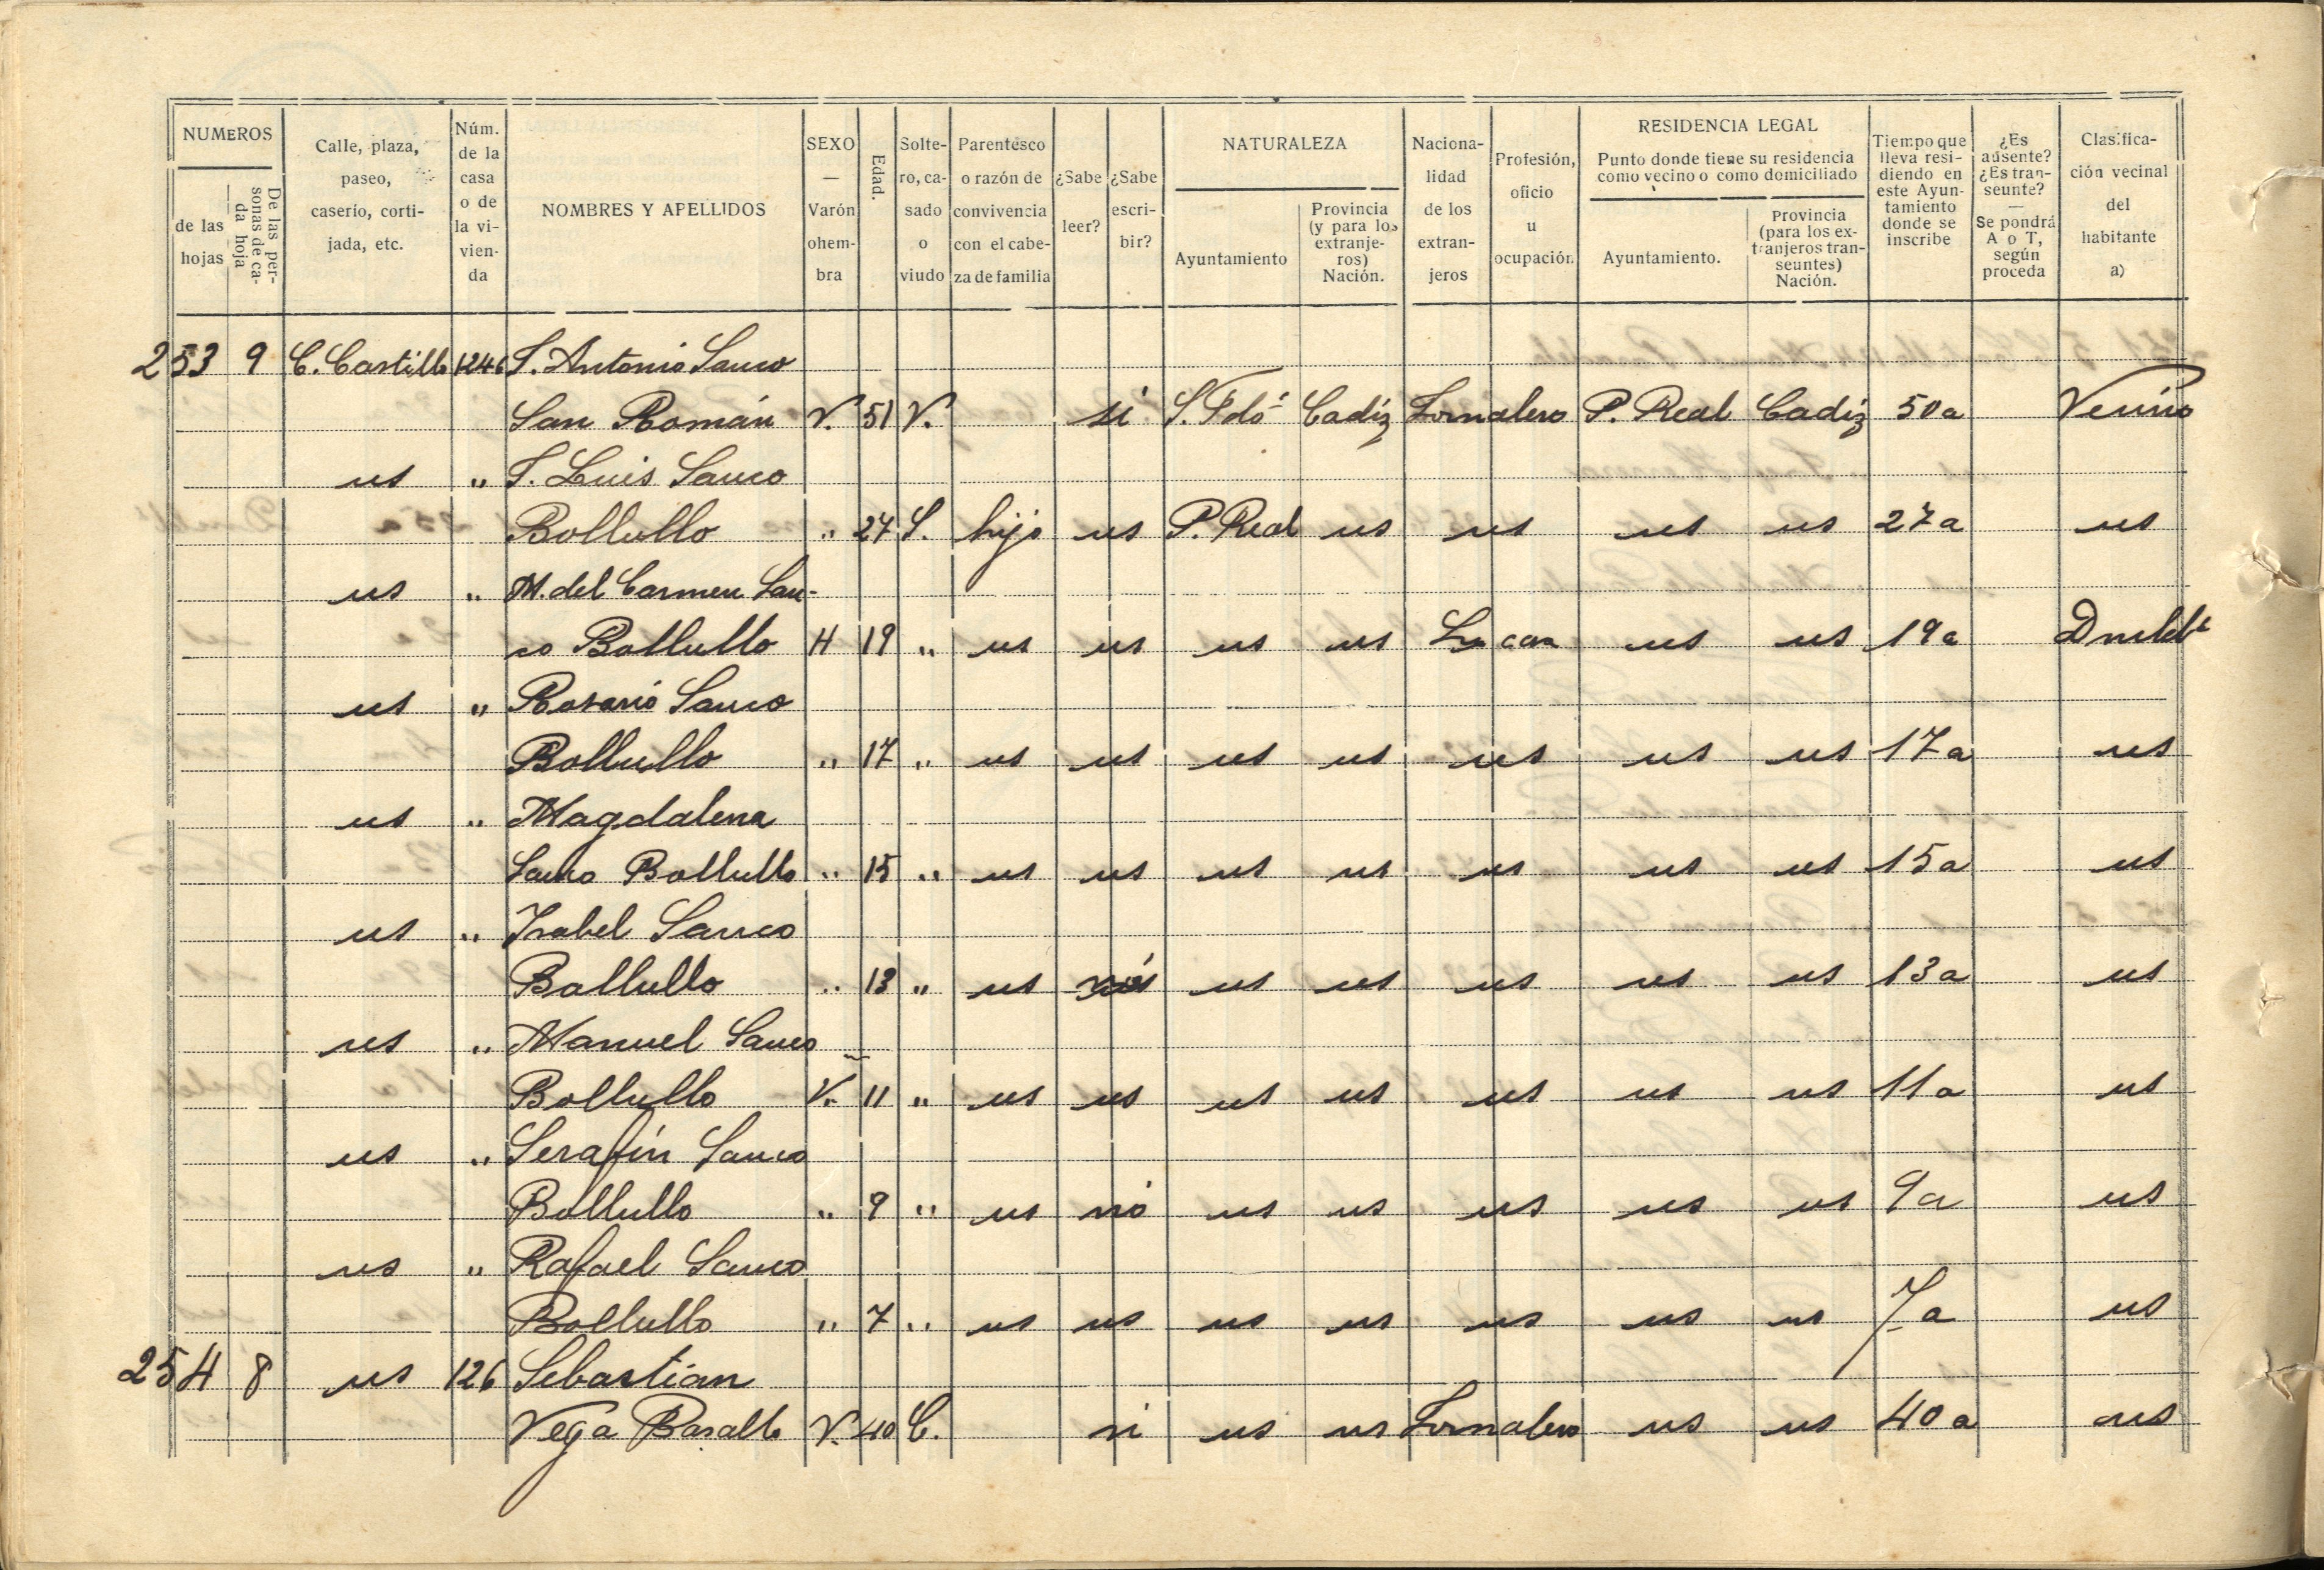 NUMEROS
de las hojas
De las personas de cada hoja
Calle, plaza, paseo, caserío, cortijada, etc.
Núm. de la casa o de la vivienda
NOMBRES Y APELLIDOS
SEXO — Varón o hembra
Edad.
Soltero, casado o viudo
Parentesco o razón de convivencia con el cabeza de familia
¿Sabe leer?
¿Sabe escribir?
NATURALEZA
Ayuntamiento
Provincia (y para los extranjeros) Nación.
Nacionalidad de los extranjeros
Profesión, oficio u ocupación
RESIDENCIA LEGAL
Punto donde tiene su residencia como vecino o como domiciliado
Ayuntamiento.
Provincia (para los extranjeros transeuntes) Nación.
Tiempo que lleva residiendo en este Ayuntamiento donde se inscribe
¿Es ausente? ¿Es transeunte? — Se pondrá A o T, según proceda
Clasificación vecinal del habitante a)
253 9 C. Castillo 124 S. Antonio Sauco
San Román V. 51 V. si S. Fdó Cadiz Jornalero P. Real Cadiz 50a Vecino
us " S. Luis Sauco
Bollullo " 27 S. hijo us P. Real us us us us 27a us
us " M. del Carmen Sau-
co Bollullo H 19 " us us us us us us 19a
us " Rosario Sauco
Bollullo " 17 " us us us us us us us 17a us
us " Magdalena
Sauco Bollullo " 15 " us us us us us us us 15a us
us " Isabel Sauco
Bollullo " 13 " us us us us us us 13a us
us " Manuel Sauco
Bollullo V. 11 " us us us us us us us 11a us
us " Serafín Sauco
Bollullo " 9 " us nó us us us us us 9a us
us " Rafael Sauco
Bollullo " 7 " us us us us us us us 7a us
254 8 us 126 Sebastián
Vega Basallo V. 40 C. si us us Jornalero us us 40a us